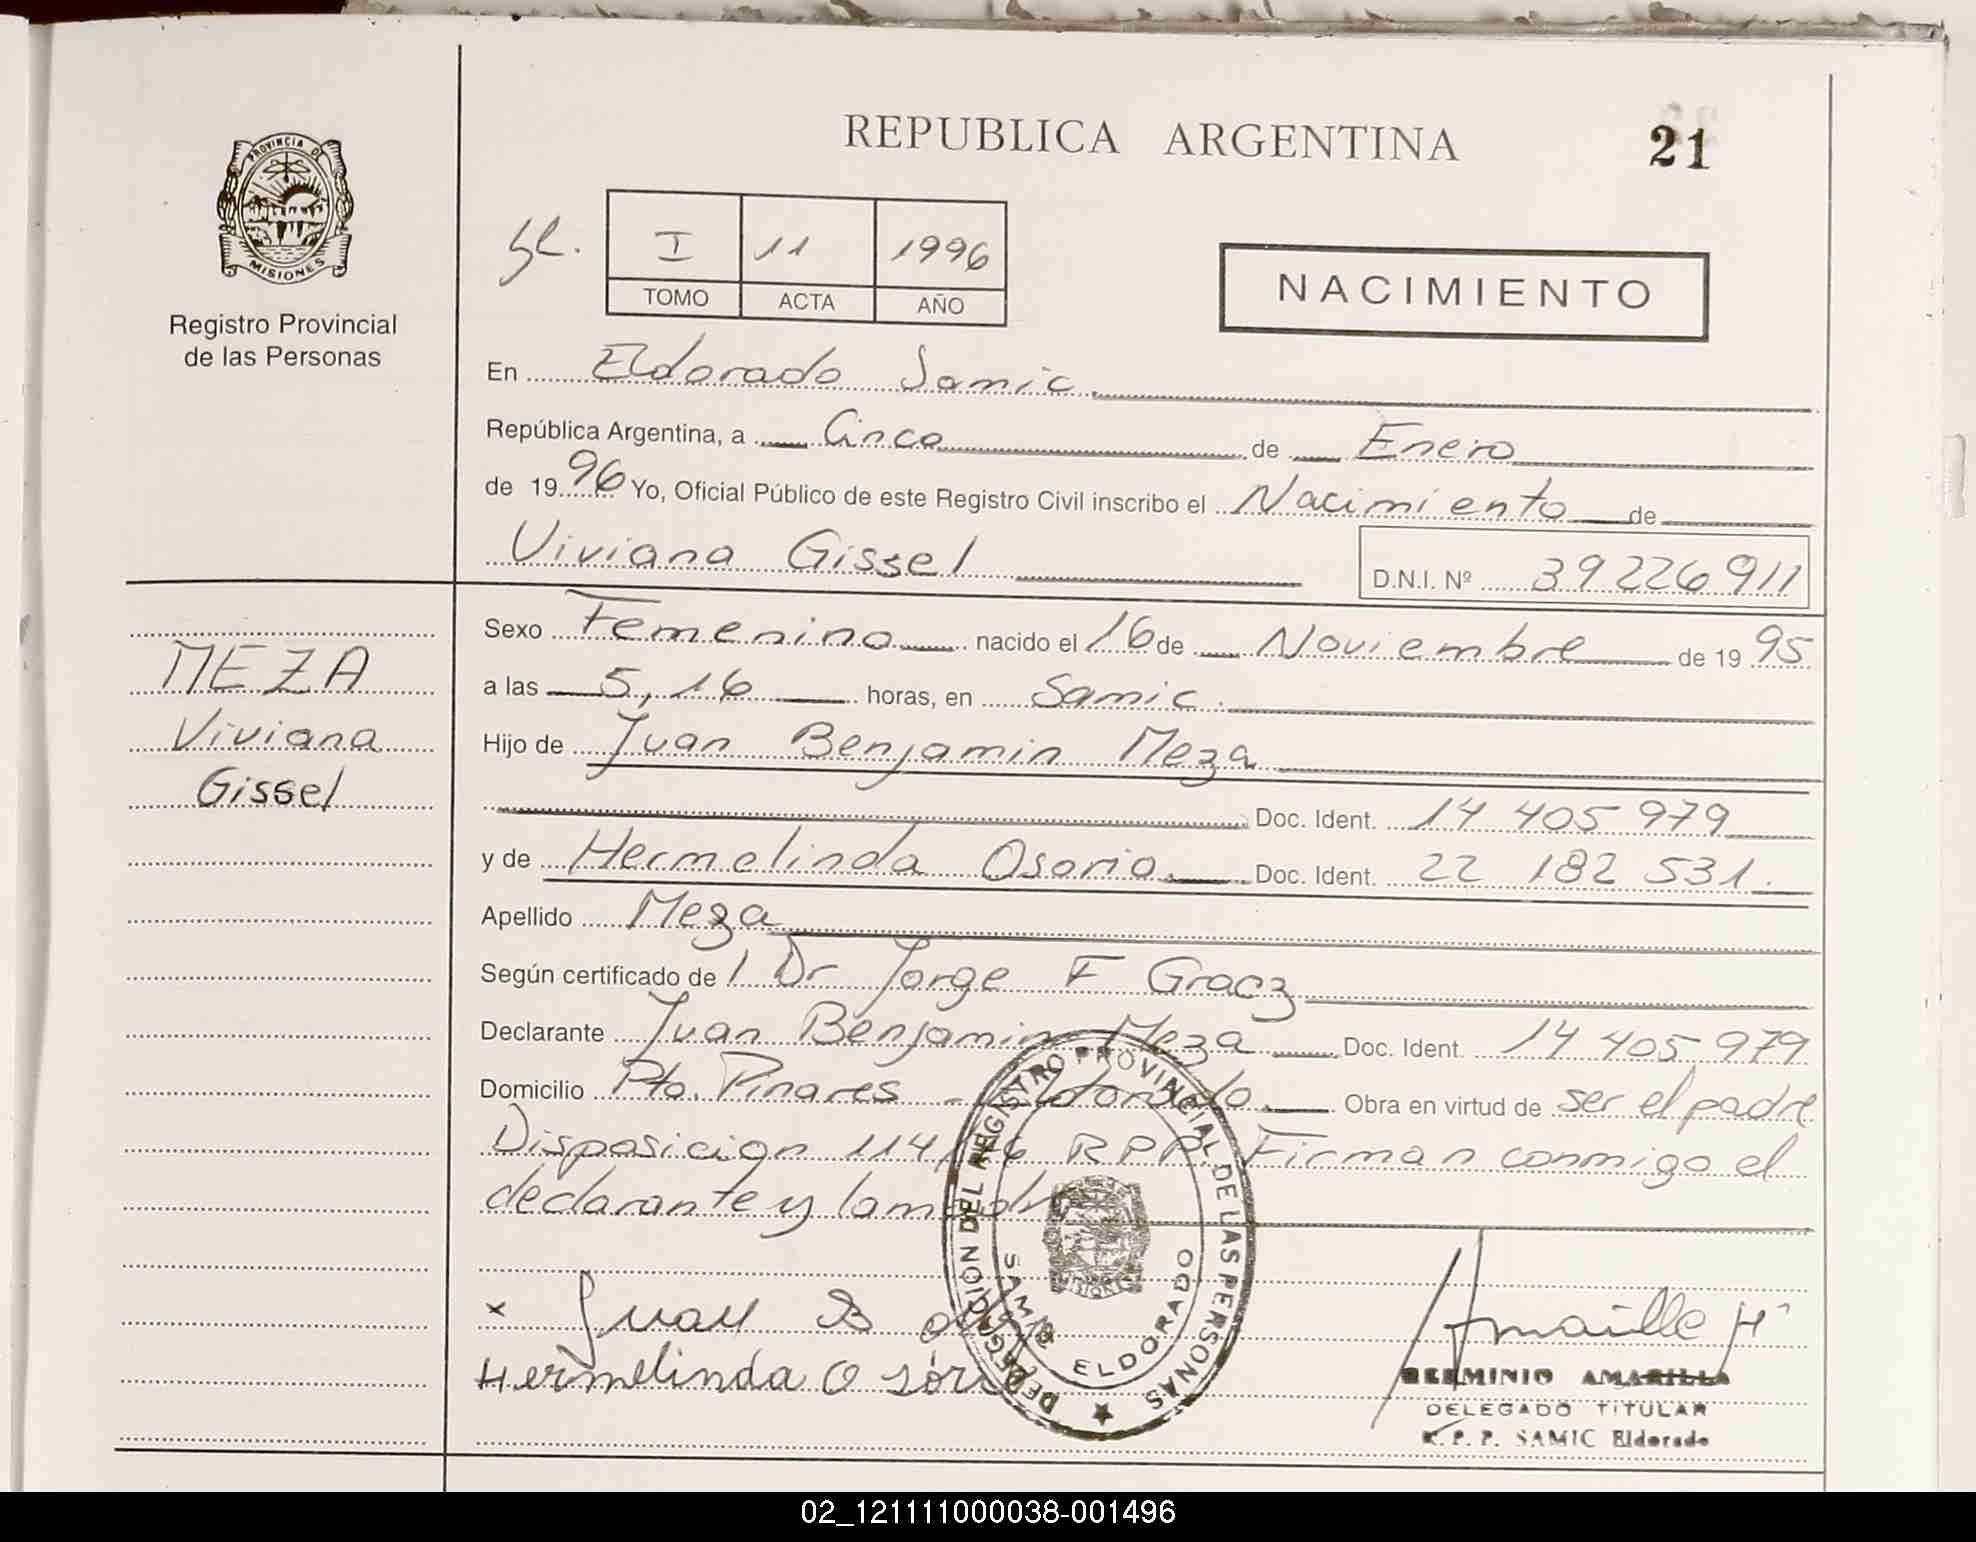 REPUBLICA ARGENTINA
21
PROVINCIA DE
MISIONES
Registro Provincial
de las Personas
I 11 1996
TOMO ACTA AÑO
NACIMIENTO
En Eldorado Samic
República Argentina, a Cinco de Enero
de 1996 Yo, Oficial Público de este Registro Civil inscribo el Nacimiento de
Viviana Gissel D.N.I. Nº 39226911
MEZA
Viviana
Gissel
Sexo Femenino nacido el 16 de Noviembre de 1995
a las 5,16 horas, en Samic.
Hijo de Juan Benjamin Meza
Doc. Ident. 14 405 979
y de Hermelinda Osorio. Doc. Ident. 22 182 531.
Apellido Meza
Según certificado de / Dr Jorge F Gracz
Declarante Juan Benjamin Meza Doc. Ident. 14 405 979
Domicilio Pto. Pinares - Eldorado. Obra en virtud de ser el padre
Disposicion 114/ RPP. Firman conmigo el
declarante y la madre
DELEGACION DEL REGISTRO PROVINCIAL DE LAS PERSONAS
SAMIC ELDORADO
x Juan B
Hermelinda Osório
Amarilla H
HERMINIO AMARILLA
DELEGADO TITULAR
R. P. P. SAMIC Eldorado
02_121111000038-001496